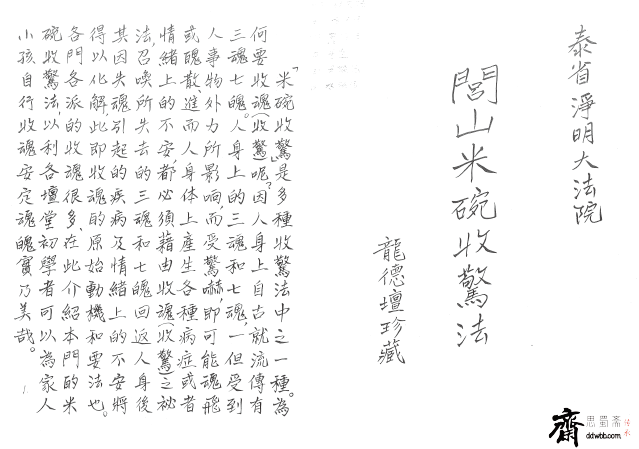 泰省淨明大法院
閭山米碗收驚法
龍德壇珍藏
「米碗收驚」是多種收驚法中之一種。為
何要收魂(收驚)呢?因人身上自古就流傳有
三魂七魄。人身上的三魂和七魂,一但受到
人事物,外力所影响,而受驚嚇,即可能魂飛
或醜散,進而人身体上產生各種病症或者
情緒上的不安,都必須藉由收魂(收驚)之祕
法,召喚所失去的三魂和七魄回返人身後
其因失魂引起的疾病及情緒上的不安將
得以化解,此即收魂的原始動機和要法也。
各門各派的收魂很多,在此介紹本門的米
碗收驚法,以利各壇堂初學者可以為家人
小孩自行收魂安定魂魄實乃美哉。
1
齋
思蜀斋
ddwbb.com